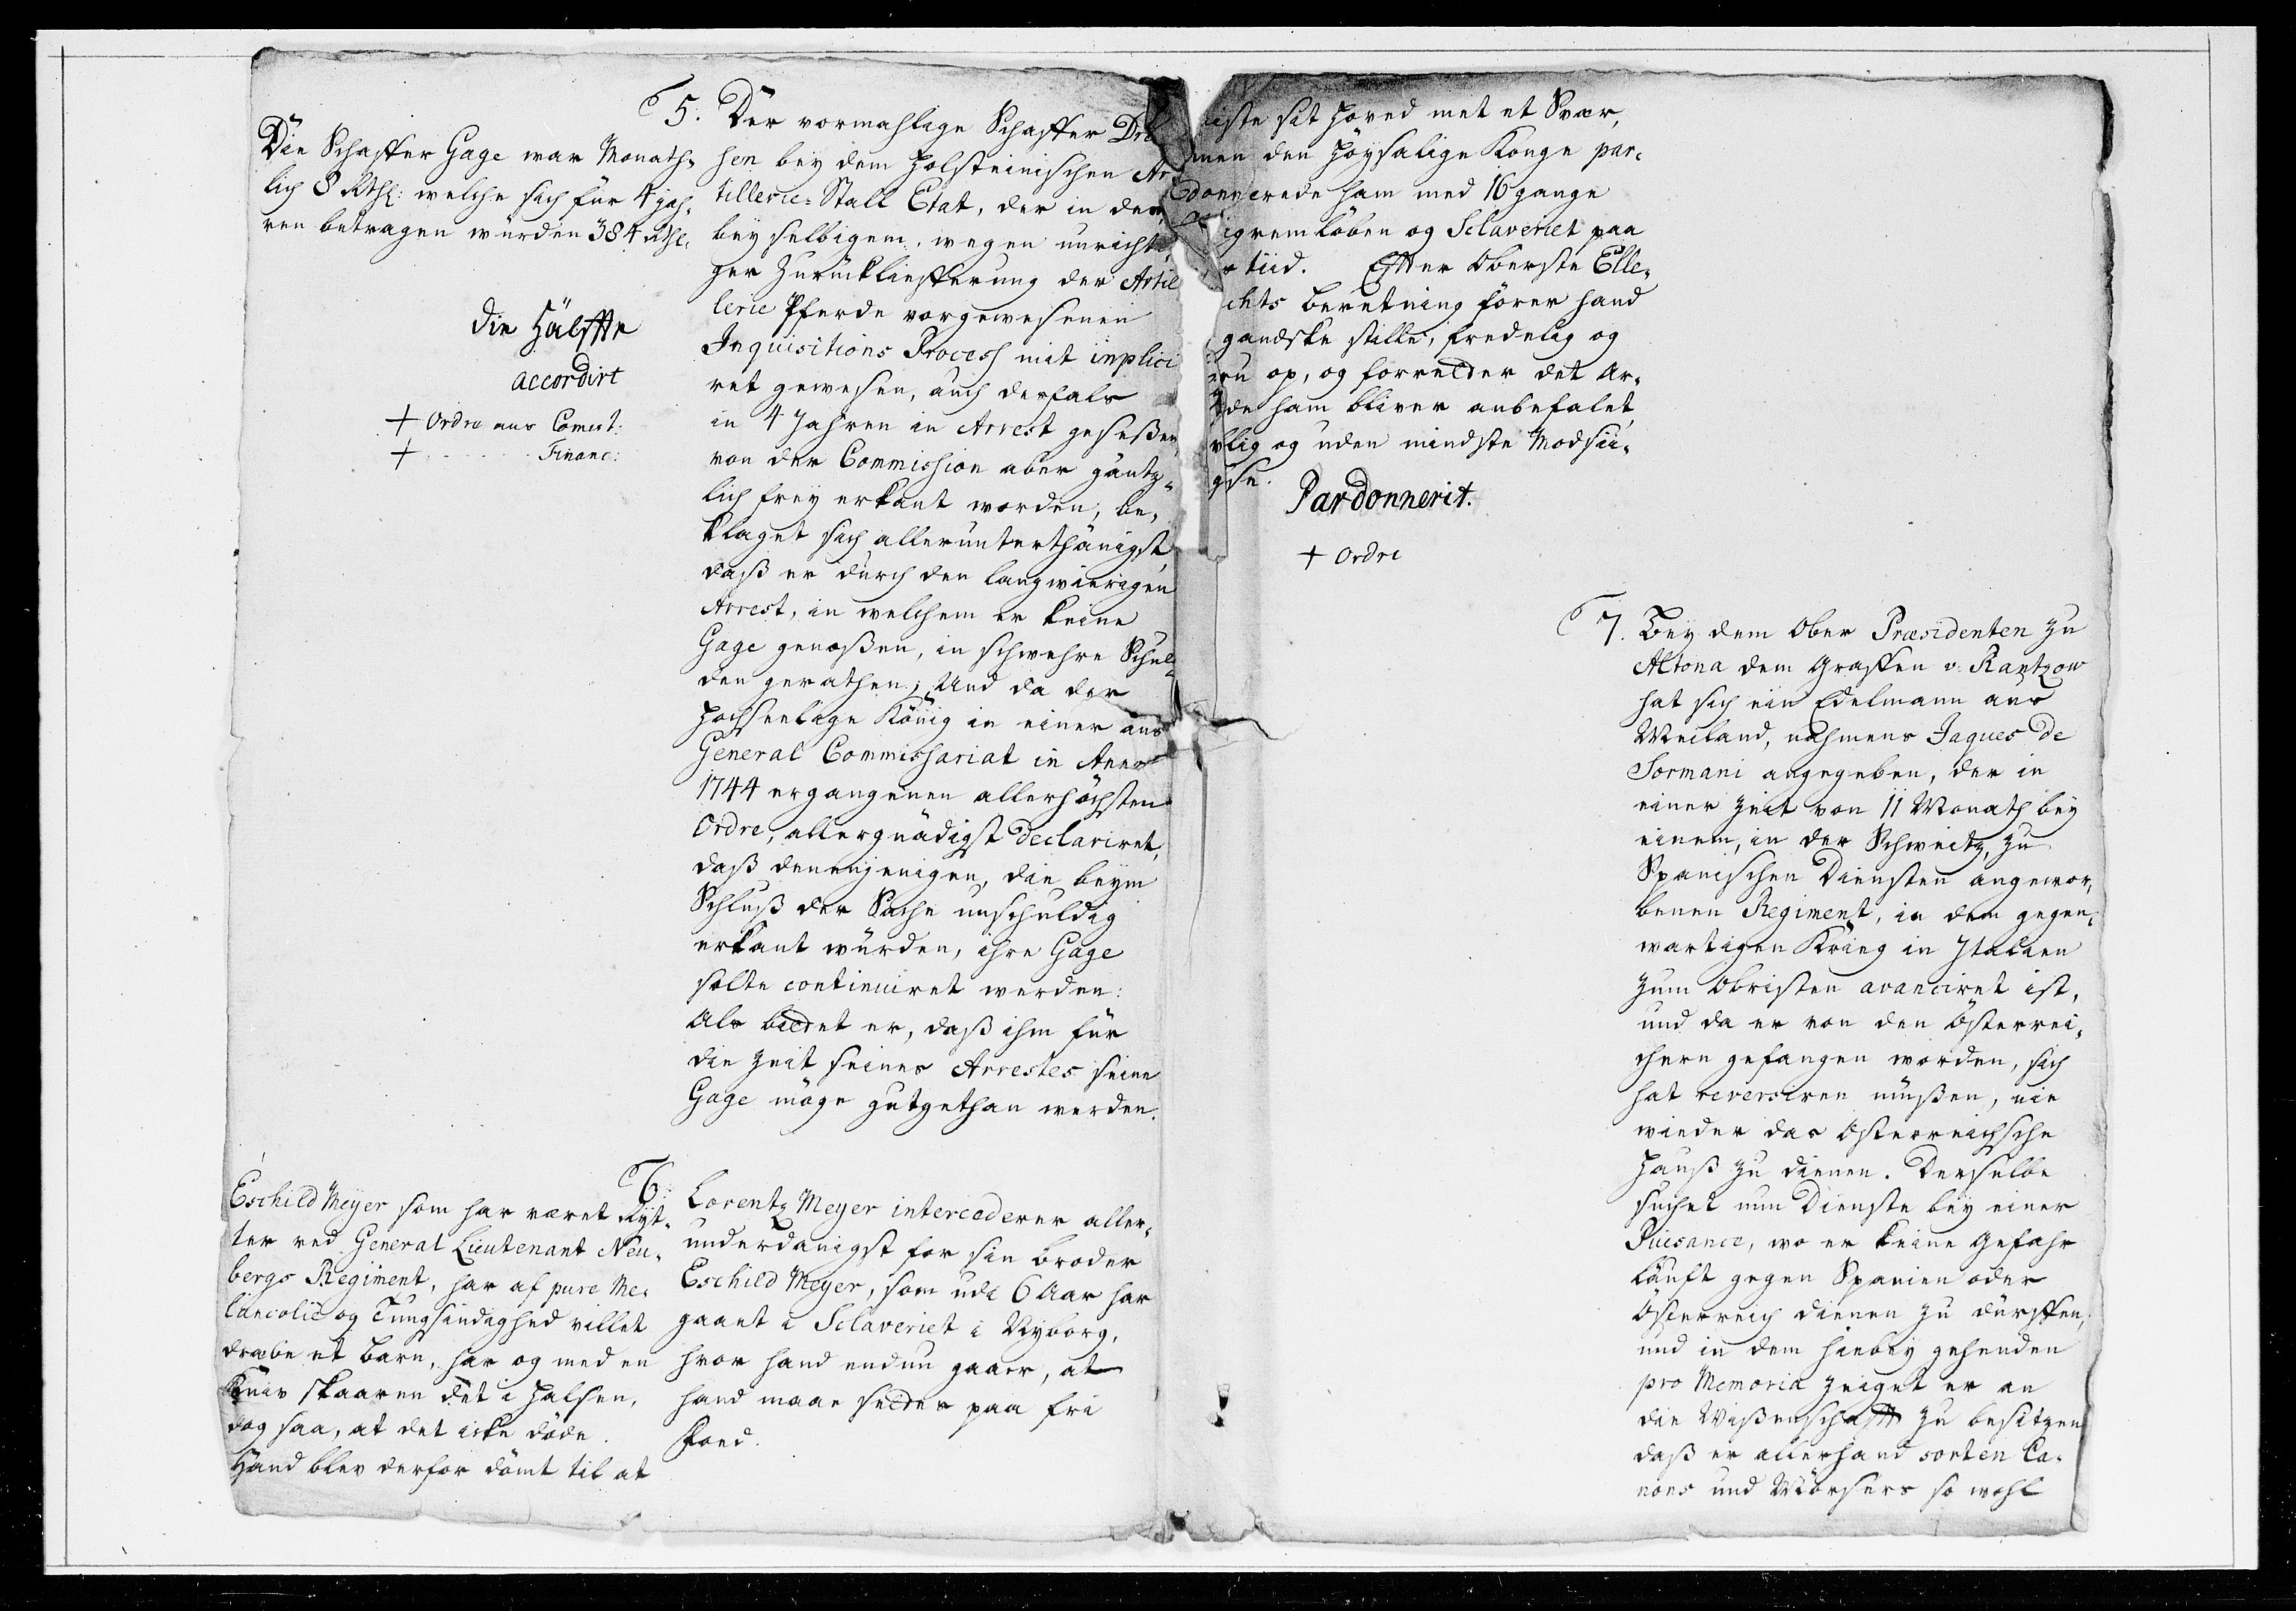 Die Schaffer Gage war Monath-
lich 8 Rthl: welche sich für 4 Jah-
ren betragen würden 384 Rthl.
die Hälffte
accordirt
+ Ordre ans Comist:
+ - - - - - - Financ:
5. Der vormahlige Schaffer
hen bey dem Holsteinischen Ar-
tillerie-Stall Etat, der in dem,
bey selbigem, wegen unrichti-
ger Zurücklieferung der Artil
lerie Pferde vorgewesenen
Inquisitions Process mit implici
ret gewesen, auch desfals
in 4 Jahren in Arrest geseßen,
von der Commission aber gäntz-
lich frey erkant worden, be-
klaget sich allerunterthänigst,
daß er durch den langwierigen
Arrest, in welchem er keine
Gage genoßen, in schwehre Schul-
den gerathen; Und da der
Hochseelige König in einer ans
General Commissariat in Anno
1744 ergangenen allerhöchsten
Ordre, allergnädigst declariret,
daß denenjenigen, die beym
Schluß der Sache unschuldig
erkant würden, ihre Gage
solte continuiret werden:
Als bittet er, daß ihm für
die Zeit seines Arrestes seine
Gage möge gutgethan werden.
Eschild Meyer som har været Ryt-
ter ved General Lieutenant Neu-
bergs Regiment, har af pure Me-
lancolie og Tungsindighed villet
dræbe et barn, har og med en
Kniv skaaren det i Halsen,
dog saa, at det icke döde.
Hand blev derfor dömt til at
6. Lorentz Meyer intercederer aller-
underdanigst for sin broder
Eschild Meyer, som udi 6 Aar har
gaaet i Sclaveriet i Nyborg,
hvor hand endnu gaar, at
hand maae settes paa fri
Foed.
miste sit Hoved met et Svær,
men den Höysalige Konge par-
donnerede ham med 16 gange
igiemlöben og Sclaveriet paa
tiid. Efter Oberste Elle-
chts beretning förer hand
gandske stille, fredelig og
op, og forretter det Ar-
de ham bliver anbefalet,
lig og uden mindste Modsii-
gse.
Pardonnerit.
+ Ordre
7. Bey dem Ober Præsidenten zu
Altona dem Graffen v. Rantzow
hat sich ein Edelmann aus
Meiland, nahmens Jaques de
Sormani angegeben, der in
einer Zeit von 11 Monath bey
einem, in der Schweitz, zu
Spanischen Diensten angewor-
benen Regiment, in dem gegen-
wartigen Krieg in Italien
zum Obristen avanciret ist,
und da er von den Österrei-
chern gefangen worden, sich
hat reversiren müßen, nie
wieder das Österreichsche
Hauß zu dienen. Derselbe
suchet nun Dienste bey einer
Puisance, wo er keine Gefahr
läuft gegen Spanien oder
Österreich dienen zu dürffen,
und in dem hiebey gehenden
pro Memoria zeiget er an
die Wißenschafft zu besitzen
daß er allerhand sorten Ca-
nons und Mörsers so wohl